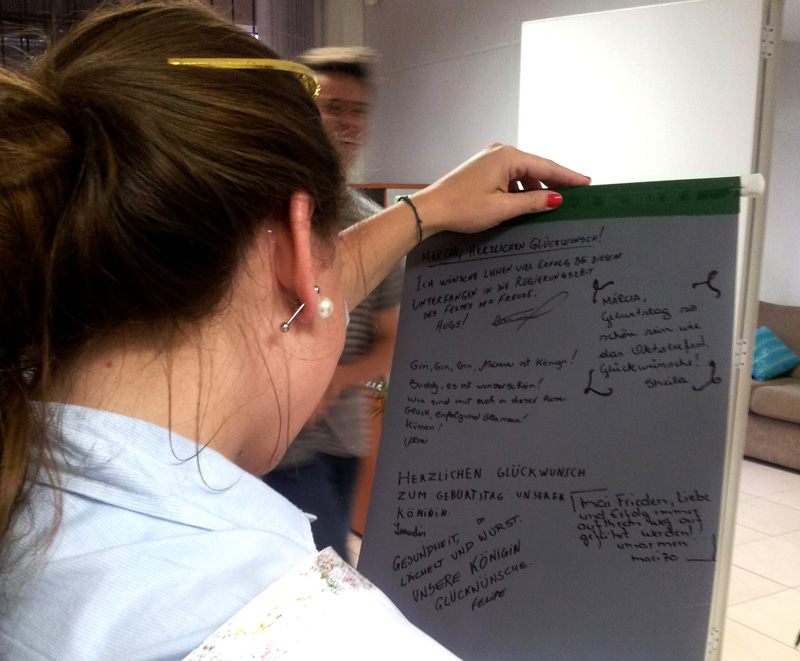 MÁRCIA, HERZLICHEN GLÜCKWUNSCH!
ICH WÜNSCHE IHNEN VIEL ERFOLG BEI DIESEM
UNTERFANGEN IN DIE REGIERUNGSZEIT
DES FESTES DER FREUDE.
HUGS!
MÁRCIA,
Geburtstag so
schön sein wie
das Oktoberfest.
Glückwünsche!
Sheila
Gin, Gin, Gin, Márcia ist König!
Buddy, es ist wunderschön!
Wir sind mit euch in dieser Reise
Glück, Erfolg und
Küssen!
HERZLICHEN GLÜCKWUNSCH
ZUM GEBURTSTAG UNSERER
KÖNIGIN.
GESUNDHEIT,
LÄCHELT UND WURST.
UNSERE KÖNIGIN
GLÜCKWÜNSCHE.
FELIPE
mai Frieden, Liebe
und Erfolg immer
auf Ihrem weg auf
geführt werden!
umarmen